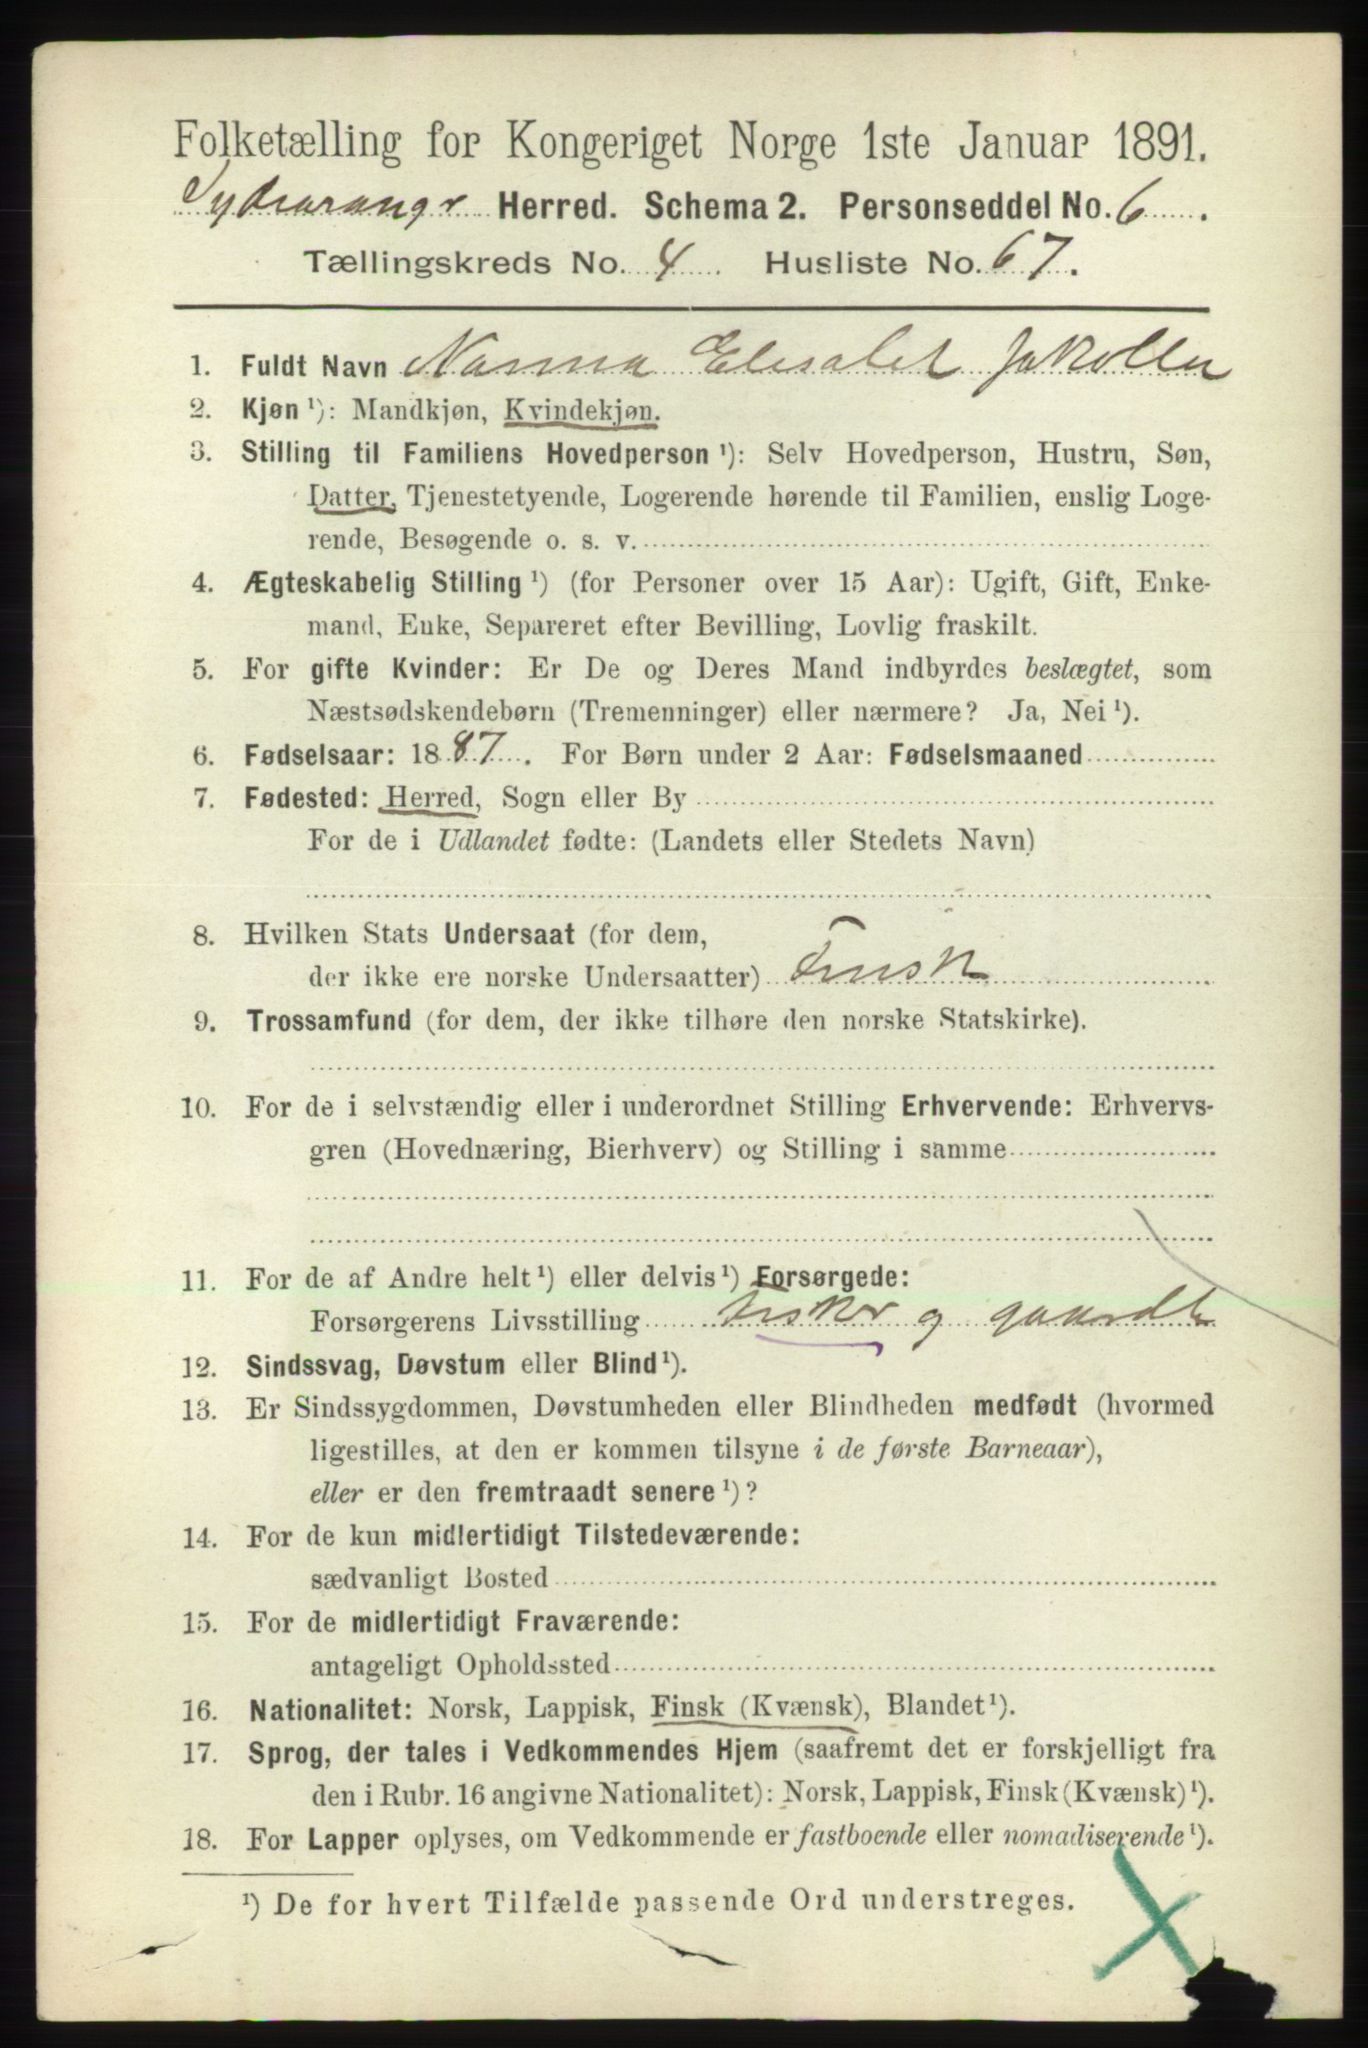 Folketælling for Kongeriget Norge 1ste Januar 1891.
Sydvaranger Herred. Schema 2. Personseddel No. 6.
Tællingskreds No. 4 Husliste No. 67.
1. Fuldt Navn Nanna Elisabet
2. Kjøn ¹): Mandkjøn, Kvindekjøn.
3. Stilling til Familiens Hovedperson ¹): Selv Hovedperson, Hustru, Søn,
Datter, Tjenestetyende, Logerende hørende til Familien, enslig Loge-
rende, Besøgende o. s. v.
4. Ægteskabelig Stilling ¹) (for Personer over 15 Aar): Ugift, Gift, Enke-
mand, Enke, Separeret efter Bevilling, Lovlig fraskilt.
5. For gifte Kvinder: Er De og Deres Mand indbyrdes beslægtet, som
Næstsødskendebørn (Tremenninger) eller nærmere? Ja, Nei ¹).
6. Fødselsaar: 1887. For Børn under 2 Aar: Fødselsmaaned
7. Fødested: Herred, Sogn eller By
For de i Udlandet fødte: (Landets eller Stedets Navn)
8. Hvilken Stats Undersaat (for dem,
der ikke ere norske Undersaatter) Finsk
9. Trossamfund (for dem, der ikke tilhøre den norske Statskirke).
10. For de i selvstændig eller i underordnet Stilling Erhvervende: Erhvervs-
gren (Hovednæring, Bierhverv) og Stilling i samme
11. For de af Andre helt ¹) eller delvis ¹) Forsørgede:
Forsørgerens Livsstilling Fisker og gaardb
12. Sindssvag, Døvstum eller Blind ¹).
13. Er Sindssygdommen, Døvstumheden eller Blindheden medfødt (hvormed
ligestilles, at den er kommen tilsyne i de første Barneaar),
eller er den fremtraadt senere ¹)?
14. For de kun midlertidigt Tilstedeværende:
sædvanligt Bosted
15. For de midlertidigt Fraværende:
antageligt Opholdssted
16. Nationalitet: Norsk, Lappisk, Finsk (Kvænsk), Blandet ¹).
17. Sprog, der tales i Vedkommendes Hjem (saafremt det er forskjelligt fra
den i Rubr. 16 angivne Nationalitet): Norsk, Lappisk, Finsk (Kvænsk) ¹).
18. For Lapper oplyses, om Vedkommende er fastboende eller nomadiserende ¹).
¹) De for hvert Tilfælde passende Ord understreges.